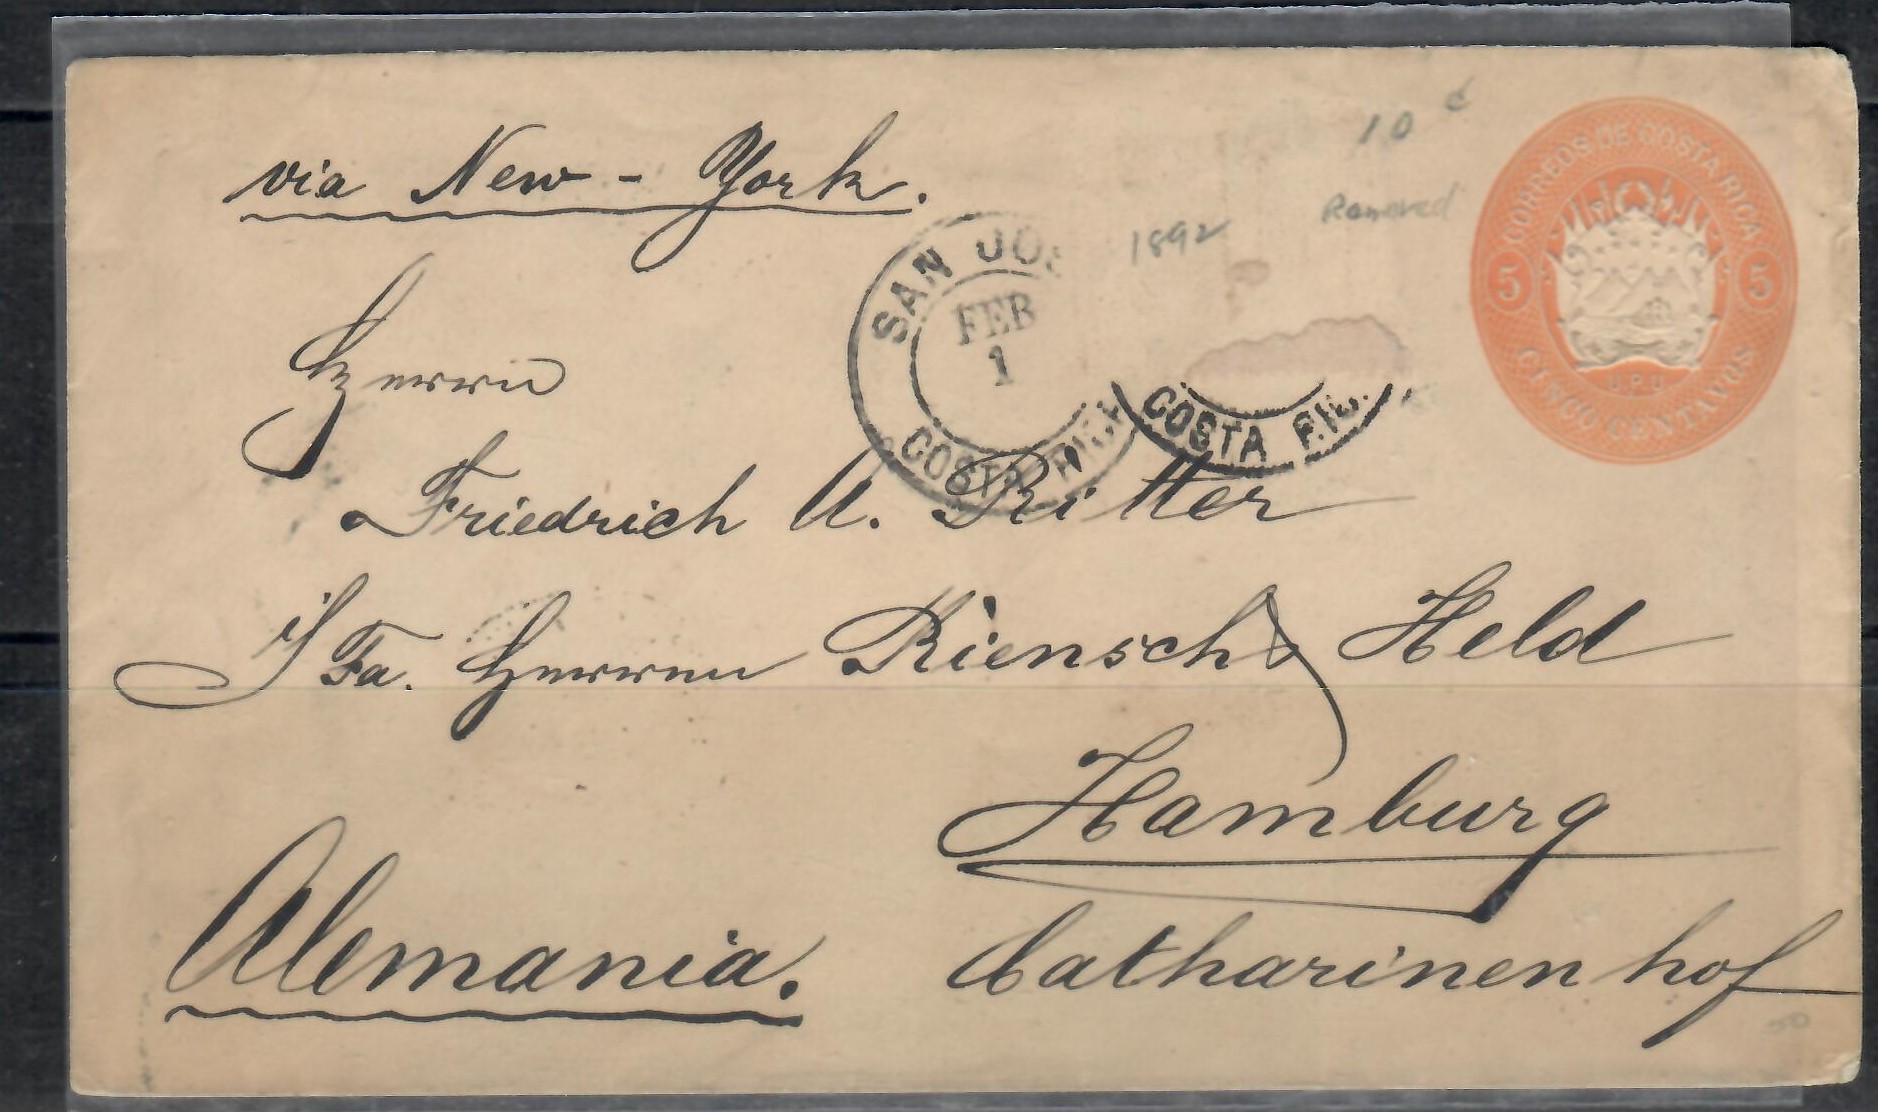 via New-York.
10 ¢
Removed
1892
CORREOS DE COSTA RICA
5 5
U.P.U
CINCO CENTAVOS
SAN JOS
FEB
1
COSTA RICA
COSTA RIC
Herrn
Friedrich A. Ritter
i/Fa. Herren Riensch & Held
Hamburg
Catharinenhof
Alemania.